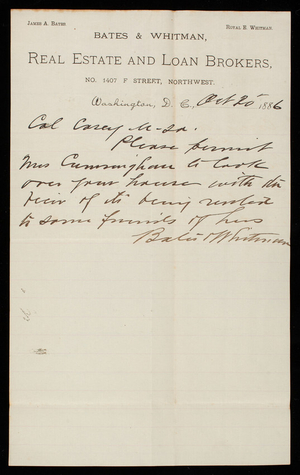 JAMES A. BATES ROYAL E. WHITMAN
BATES & WHITMAN,
REAL ESTATE AND LOAN BROKERS,
NO. 1407 F STREET, NORTHWEST.
Washington, D. C., Oct 25 1886
Col Casey
Please permit
Mrs Cunningham to look
over your house with the
view of its being rented
to some friends of hers
Bates & Whitman